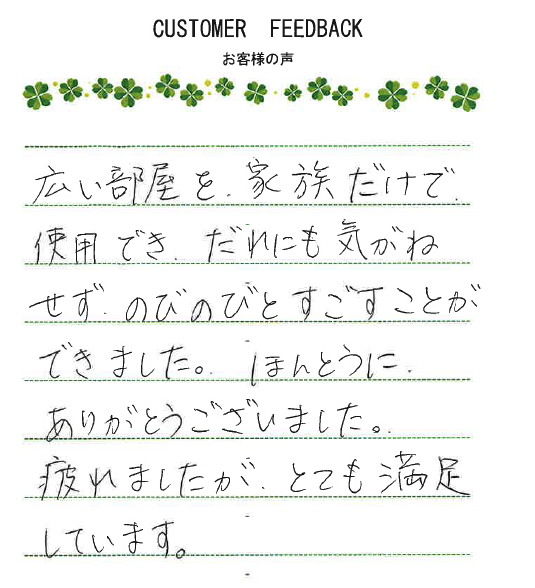 CUSTOMER FEEDBACK
お客様の声
広い部屋を、家族だけで、
使用でき、だれにも気がね
せず、のびのびとすごすことが
できました。ほんとうに、
ありがとうございました。
疲れましたが、とても満足
しています。